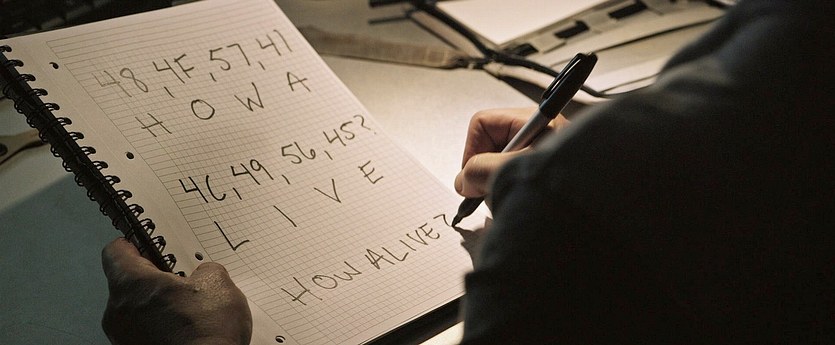 48, 4F, 57, 41
H O W A
4C, 49, 56, 45?
L I V E
HOW ALIVE?